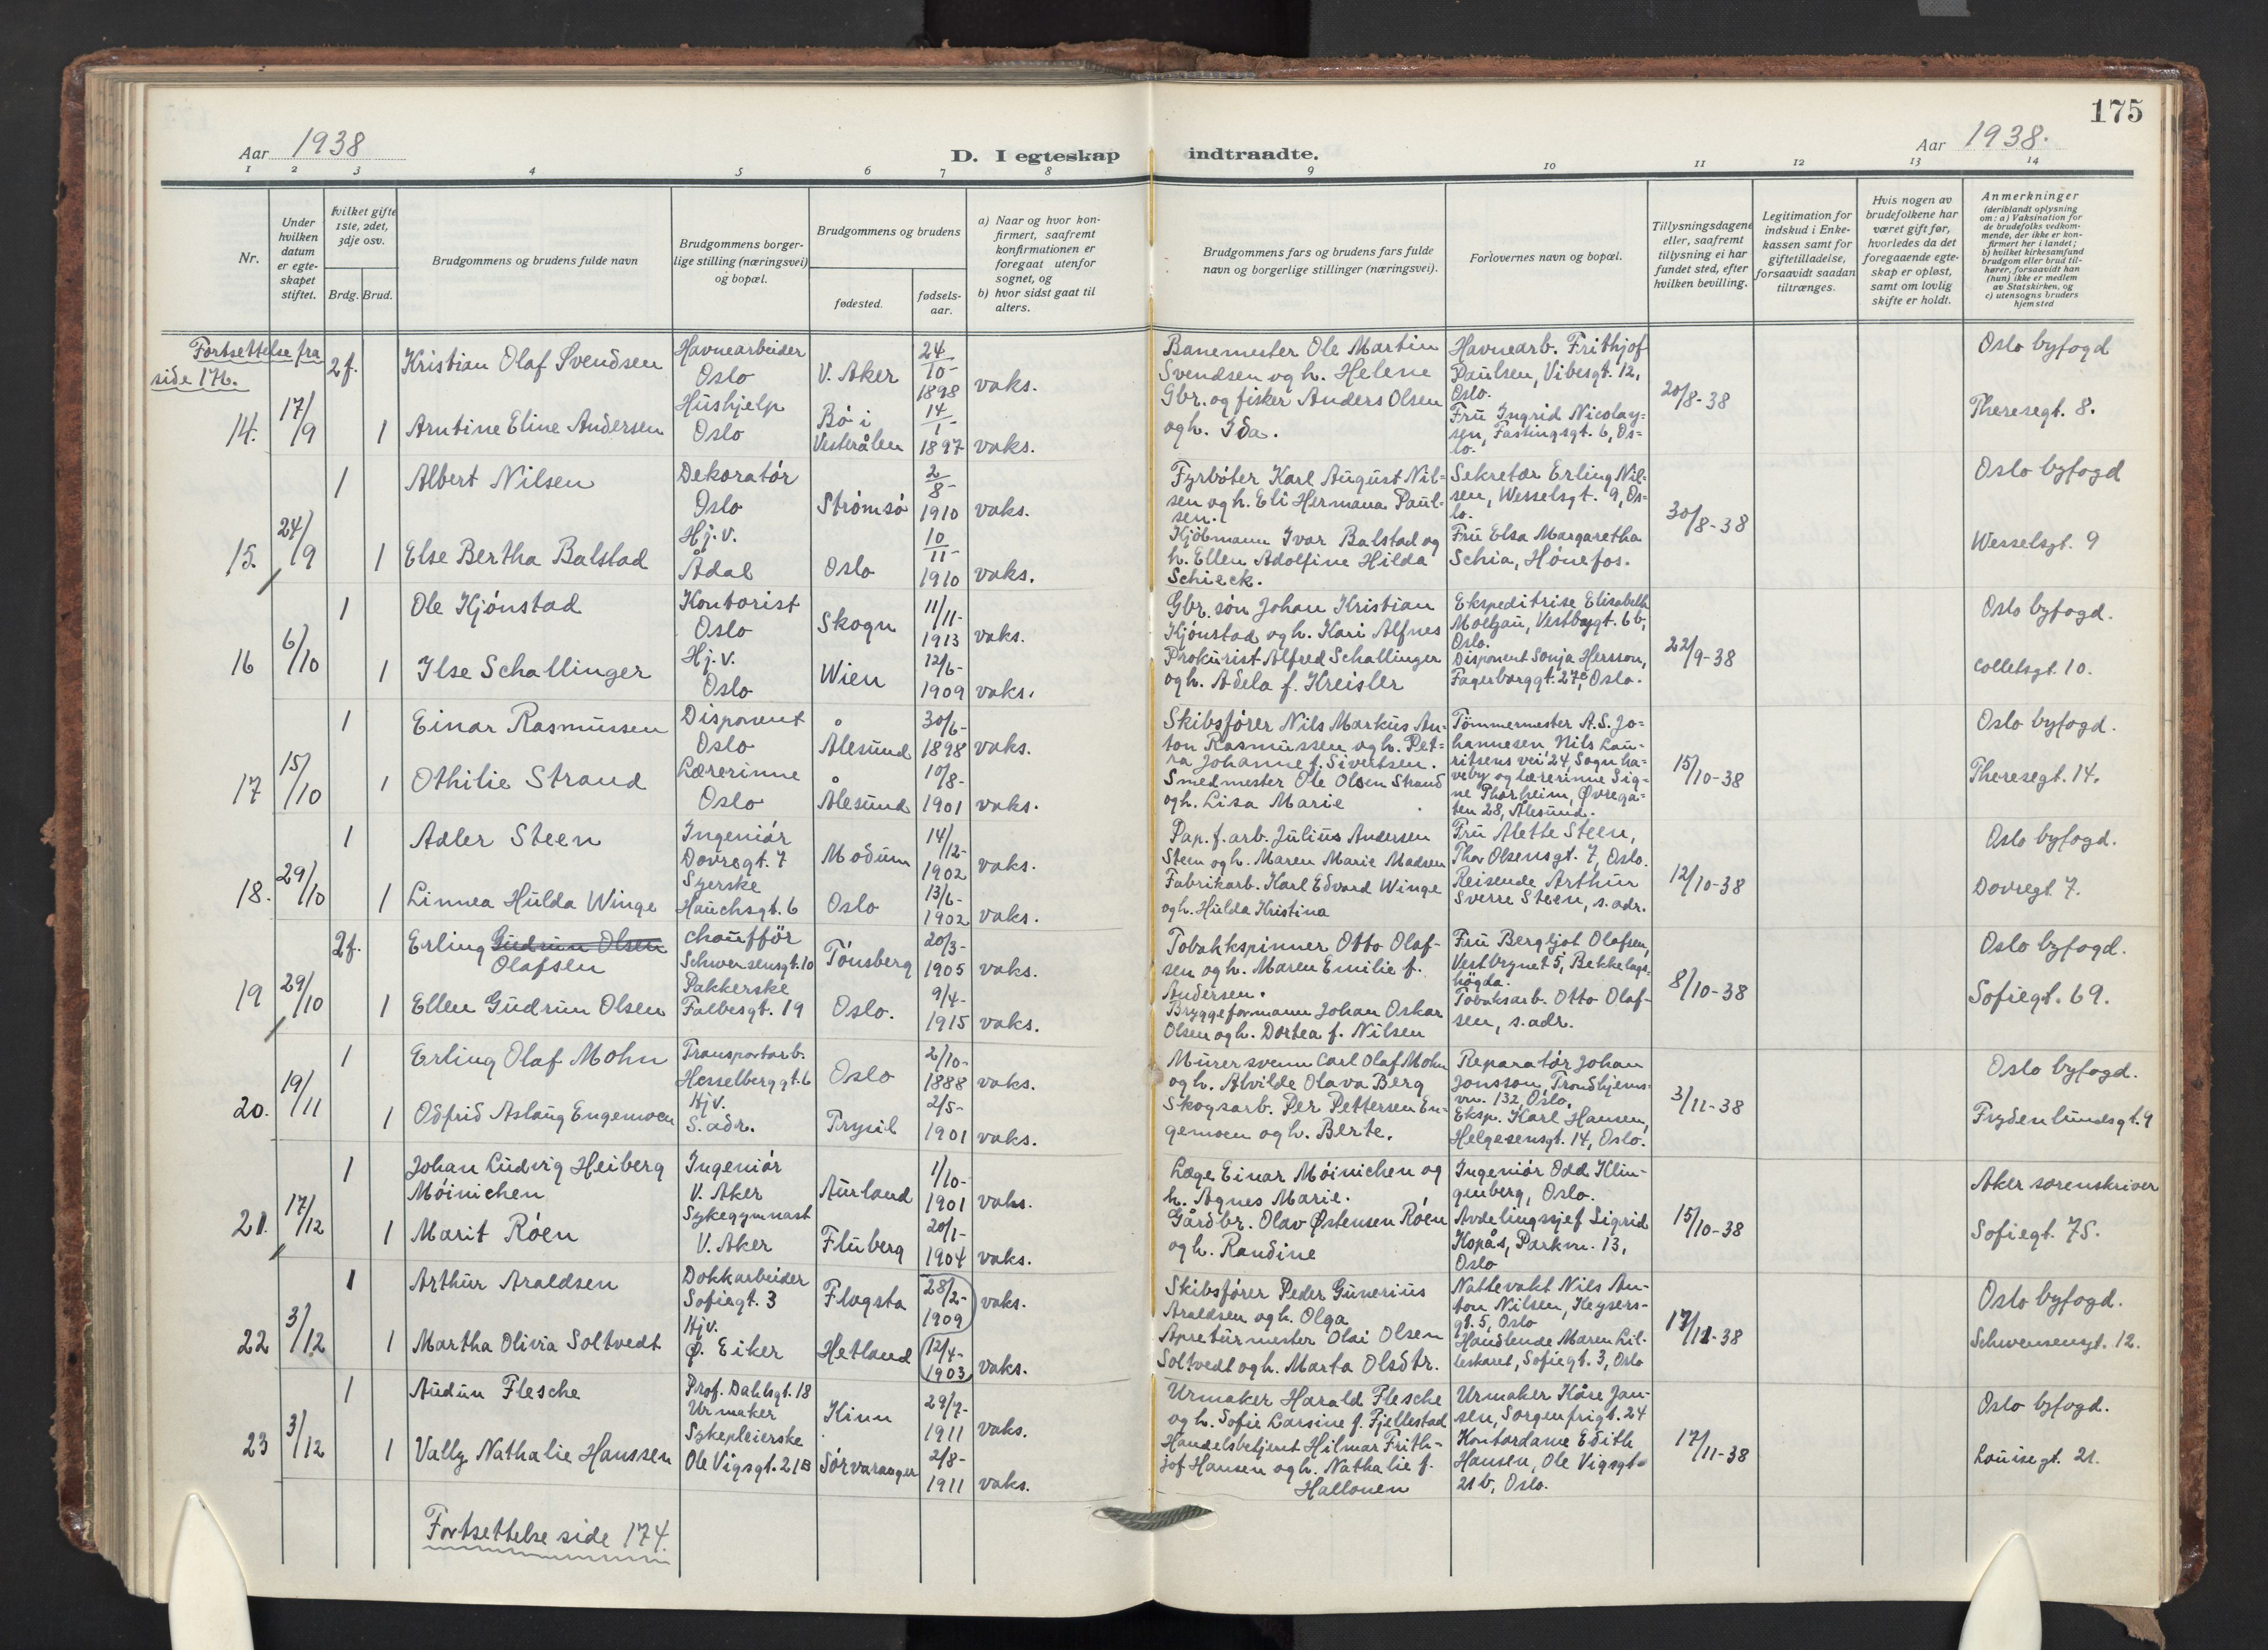 175
Aar 1938
D. I egteskap indtraadte.
Aar 1938.
1 2 3 4 5 6 7 8 9 10 11 12 13 14
Nr.
Under hvilken datum er egteskapet stiftet.
Hvilket gifte 1ste, 2det, 3dje osv.
Brdg. Brud.
Brudgommens og brudens fulde navn
Brudgommens borgerlige stilling (næringsvei) og bopæl.
Brudgommens og brudens
fødested.
fødselsaar.
a) Naar og hvor konfirmert, saafremt konfirmationen er foregaat utenfor sognet, og
b) hvor sidst gaat til alters.
Brudgommens fars og brudens fars fulde navn og borgerlige stillinger (næringsvei).
Forlovernes navn og bopæl.
Tillysningsdagene eller, saafremt tillysning ei har fundet sted, efter hvilken bevilling.
Legitimation for indskud i Enkekassen samt for giftetilladelse, forsaavidt saadan tiltrænges.
Hvis nogen av brudefolkene har været gift før, hvorledes da det foregaaende egteskap er opløst, samt om lovlig skifte er holdt.
Anmerkninger
(deriblandt oplysning om: a) Vaksination for de brudefolks vedkommende, der ikke er konfirmert her i landet; b) hvilket kirkesamfund brudgom eller brud tilhører, forsaavidt han (hun) ikke er medlem av Statskirken, og c) utensogns bruders hjemsted
Fortsettelse fra side 176.
14. 17/9 2f. Kristian Olaf Svendsen Havnearbeider Oslo V. Aker 24/10-1898 vaks.
1 Arntine Eline Andersen Hushjelp Oslo Bö i Vesterålen 14/1-1897 vaks.
Banemester Ole Martin
Svendsen og h. Helene
Gbr. og fisker Anders Olsen
og h. Ida.
Havnearb. Frithjof
Paulsen, Vibesgt. 12,
Oslo.
Fru Ingrid Nicolay-
sen, Fastingsgt. 6, Os-
lo.
20/8-38
Oslo byfogd
Theresegt. 8.
15. 24/9 1 Albert Nilsen Dekoratör Oslo Strömsö 2/8-1910 vaks.
1 Else Bertha Balstad Hj. v. Ådal Oslo 10/11-1910 vaks.
Fyrböter Karl August Nil-
sen og h. Eli Hermana Paul-
sen.
Kjöbmann Ivar Balstad og
h. Ellen Adolfine Hilda
Schieck.
Sekretær Erling Nil-
sen, Wesselsgt. 9, Os-
lo.
Fru Elsa Margaretha
Schia, Hönefos.
30/8-38
Oslo byfogd
Wesselsgt. 9
16 6/10 1 Ole Kjönstad Kontorist Oslo Skogn 11/11-1913 vaks.
1 Ilse Schallinger Hj. v. Oslo Wien 12/6-1909 vaks.
Gbr. sön Johan Kristian
Kjönstad og h. Kari Alfnes
Prokurist Alfred Schallinger
og h. Adela f. Kreisler
Ekspeditrise Elisabeth
Vestbygt. 6b,
Oslo.
Disponent Sonja Hersson,
Fagerborggt. 27, Oslo.
22/9-38
Oslo byfogd.
Colletsgt. 10.
17 15/10 1 Einar Rasmussen Disponent Oslo Ålesund 30/6-1898 vaks.
1 Othilie Strand Lærerinne Oslo Ålesund 10/8-1901 vaks.
Skibsförer Nils Markus An-
ton Rasmussen og h. Pet-
ra Johanne f. Sivertsen.
Smedmester Ole Olsen Strand
og h. Lisa Marie
Tömmermester A.S. Jo-
hannesen, Nils Lau-
ritsens vei 24, Sogn ha-
veby og lærerinne Sig-
ne Thorheim, Øvrega-
ten 28, Ålesund.
15/10-38
Oslo byfogd.
Theresegt. 14.
18. 29/10 1 Adler Steen Ingeniör Dovregt. 7 Modum 14/12-1902 vaks.
1 Linnea Hulda Winge Syerske Hauchsgt. 6 Oslo 13/6-1902 vaks.
Pap. f. arb. Julius Andersen
Steen og h. Maren Marie Madsen
Fabrikarb. Karl Edvard Winge
og h. Hulda Kristina
Fru Alette Steen,
Thor Olsensgt. 7, Oslo.
Reisende Arthur
Sverre Steen, s. adr.
12/10-38
Oslo byfogd.
Dovregt 7.
19 29/10 2f. Erling Gudrun Olsen Olafsen Chaufför Schwensensgt. 10 Tönsberg 20/3-1905 vaks.
1 Ellen Gudrun Olsen Pakkerske Falbesgt. 19 Oslo. 9/4-1915 vaks.
Tobakkspinner Otto Olaf-
sen og h. Maren Emilie f.
Andersen.
Bryggeformann Johan Oskar
Olsen og h. Dortea f. Nilsen
Fru Bergljot Olafsen,
Vestbrynet 5, Bekkelags-
högda.
Tobaksarb. Otto Olaf-
sen, s. adr.
8/10-38
Oslo byfogd.
Sofiegt. 69.
20. 19/11 1 Erling Olaf Mohn Transportarb. Hesselberggt. 6 Oslo 2/10-1888 vaks.
1 Odfrid Aslaug Engemoen Hjv. S. adr. Trysil 2/5-1901 vaks.
Murersvenn Carl Olaf Mohn
og h. Alvilde Olava Berg
Skogsarb. Per Pettersen En-
gemoen og h. Berte.
Reparatör Johan
Jonsson, Trondhjems-
vn. 132, Oslo.
Eksp. Karl Hansen,
Helgesensgt. 14, Oslo.
3/11-38
Oslo byfogd.
Frydenlundsgt. 9
21. 17/12 1 Johan Ludvig Heiberg Möinichen Ingeniör V. Aker Aurland 1/10-1901 vaks.
1 Marit Röen Sykegymnast V. Aker Fluberg 20/1-1904 vaks.
Læge Einar Möinichen og
h. Agnes Marie.
Gårdbr. Olav Østensen Röen
og h. Randine
Ingeniör Odd Klin-
genberg, Oslo.
Avdelingssjef Sigrid
Kopås, Parkvn. 13,
Oslo
15/10-38
Aker sorenskriver
Sofiegt. 75.
22 3/12 1 Arthur Araldsen Dokkarbeider Sofiegt. 3 Flagsta 28/2-1909 vaks.
1 Martha Olivia Soltvedt Hjv. Ø. Eiker Hetland 12/4-1903 vaks.
Skibsförer Peder Gunerius
Araldsen og h. Olga
Apreturmester Olai Olsen
Soltvedt og h. Marta Olsdtr.
Nattevakt Nils An-
ton Nilsen, Keysers-
gt. 5, Oslo
Handlende Maren Lil-
leskaret, Sofiegt. 3, Oslo
17/11-38
Oslo byfogd.
Schwensensgt. 12.
23 3/12 1 Audun Flesche Prof. Dahlsgt. 18 Urmaker Kinn 29/7-1911 vaks.
1 Vally Nathalie Hanssen Sykepleierske Ole Vigsgt. 21B Sörvaranger 2/8-1911 vaks.
Urmaker Harald Flesche
og h. Sofie Larsine f. Fjellestad
Handelsbetjent Hilmar Frith-
jof Hansen og h. Nathalie f.
Hallonen
Urmaker Kåre Jan-
sen, Sorgenfrigt. 24
Kontordame Edith
Hansen, Ole Vigsgt-
21b, Oslo.
17/11-38
Oslo byfogd.
Louisegt. 21.
Fortsettelse side 174.